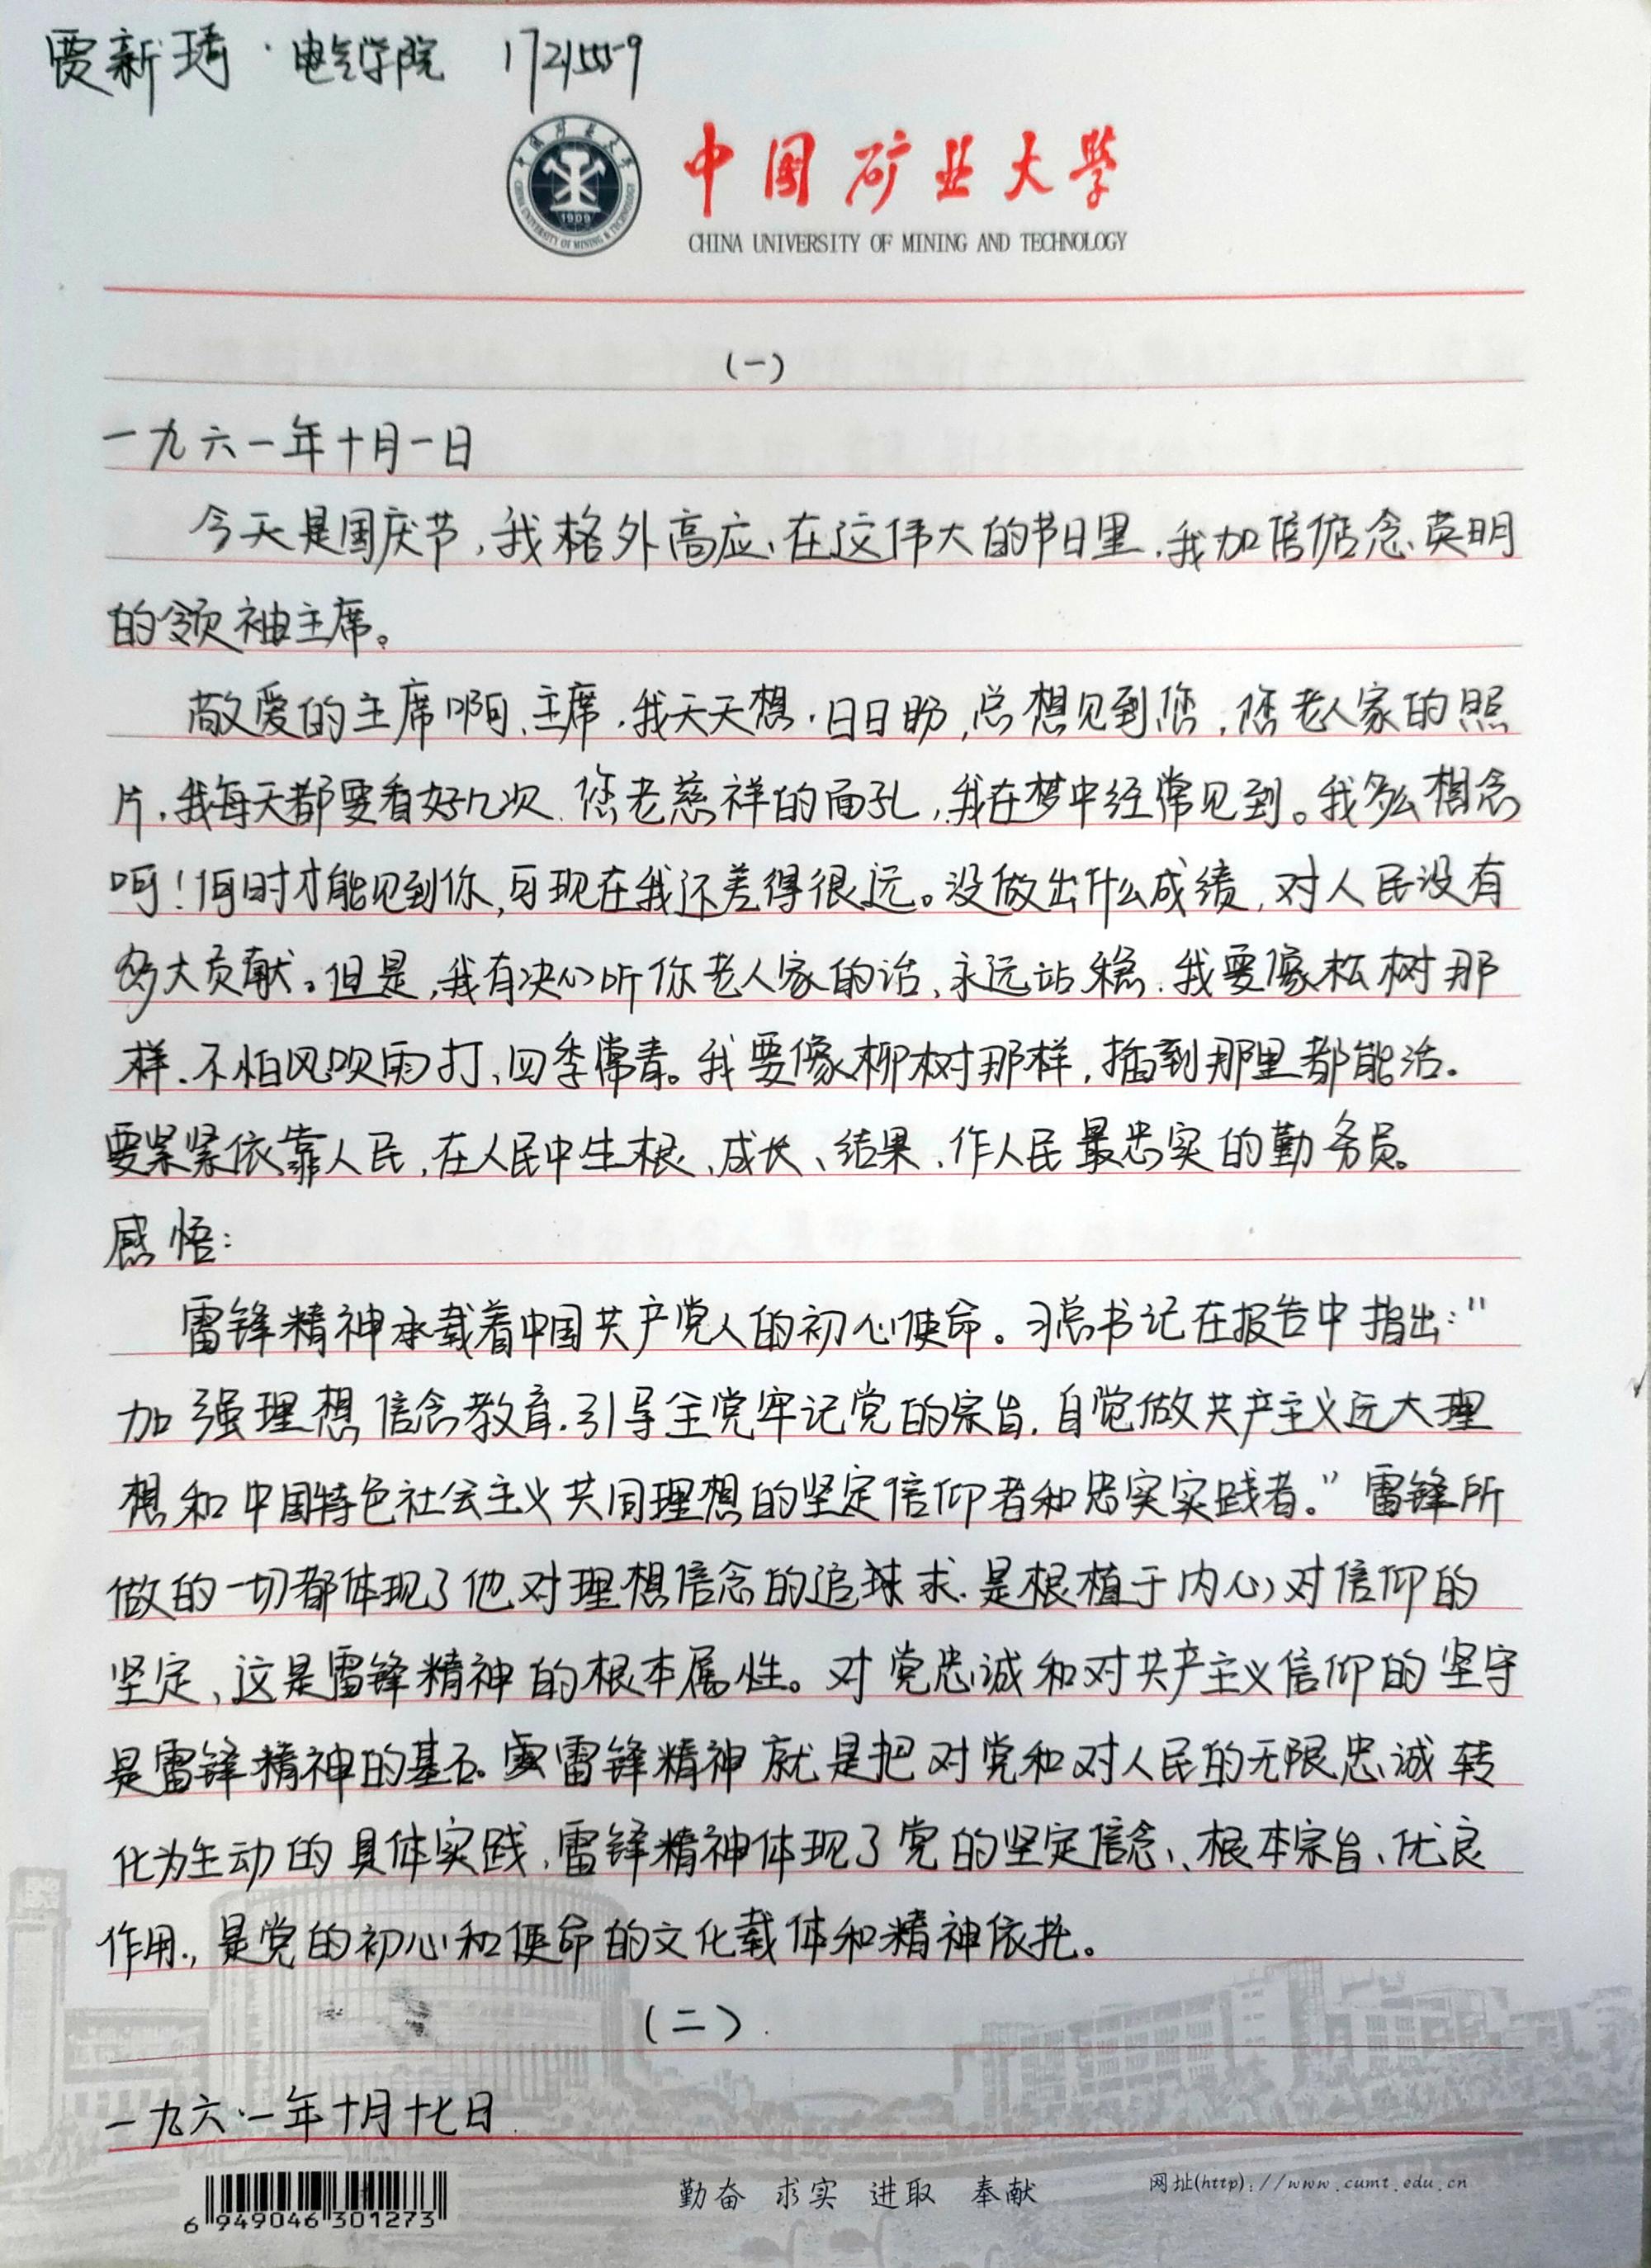 贾新琦·电气学院 17215559
中国矿业大学
CHINA UNIVERSITY OF MINING AND TECHNOLOGY
中国矿业大学
CHINA UNIVERSITY OF MINING & TECHNOLOGY
1909
(一)
一九六一年十月一日
今天是国庆节,我格外高应、在这伟大的节日里,我加倍惦念英明
的领袖主席。
敬爱的主席啊,主席,我天天想,日日盼,总想见到您,您老人家的照
片,我每天都要看好几次,您老慈祥的面孔,我在梦中经常见到。我多么想念
啊!何时才能见到你,可现在我还差得很远。没做出什么成绩,对人民没有
多大贡献。但是,我有决心听你老人家的话、永远站稳,我要像松树那
样、不怕风吹雨打、四季常青。我要像柳树那样,插到那里都能活。
要紧紧依靠人民,在人民中生根、成长、结果、作人民最忠实的勤务员。
感悟:
雷锋精神承载着中国共产党人的初心使命。习总书记在报告中指出:"
加强理想信念教育,引导全党牢记党的宗旨,自觉做共产主义远大理
想和中国特色社会主义共同理想的坚定信仰者和忠实实践者。"雷锋所
做的一切都体现了他对理想信念的追求,是根植于内心对信仰的
坚定,这是雷锋精神的根本属性。对党忠诚和对共产主义信仰的坚守
是雷锋精神的基石。雷锋精神就是把对党和对人民的无限忠诚转
化为生动的具体实践,雷锋精神体现了党的坚定信念、根本宗旨、优良
作用,是党的初心和使命的文化载体和精神依托。
(二)
一九六一年十月十七日
6 949046 301273
勤奋 求实 进取 奉献
网址(http)://www.cumt.edu.cn